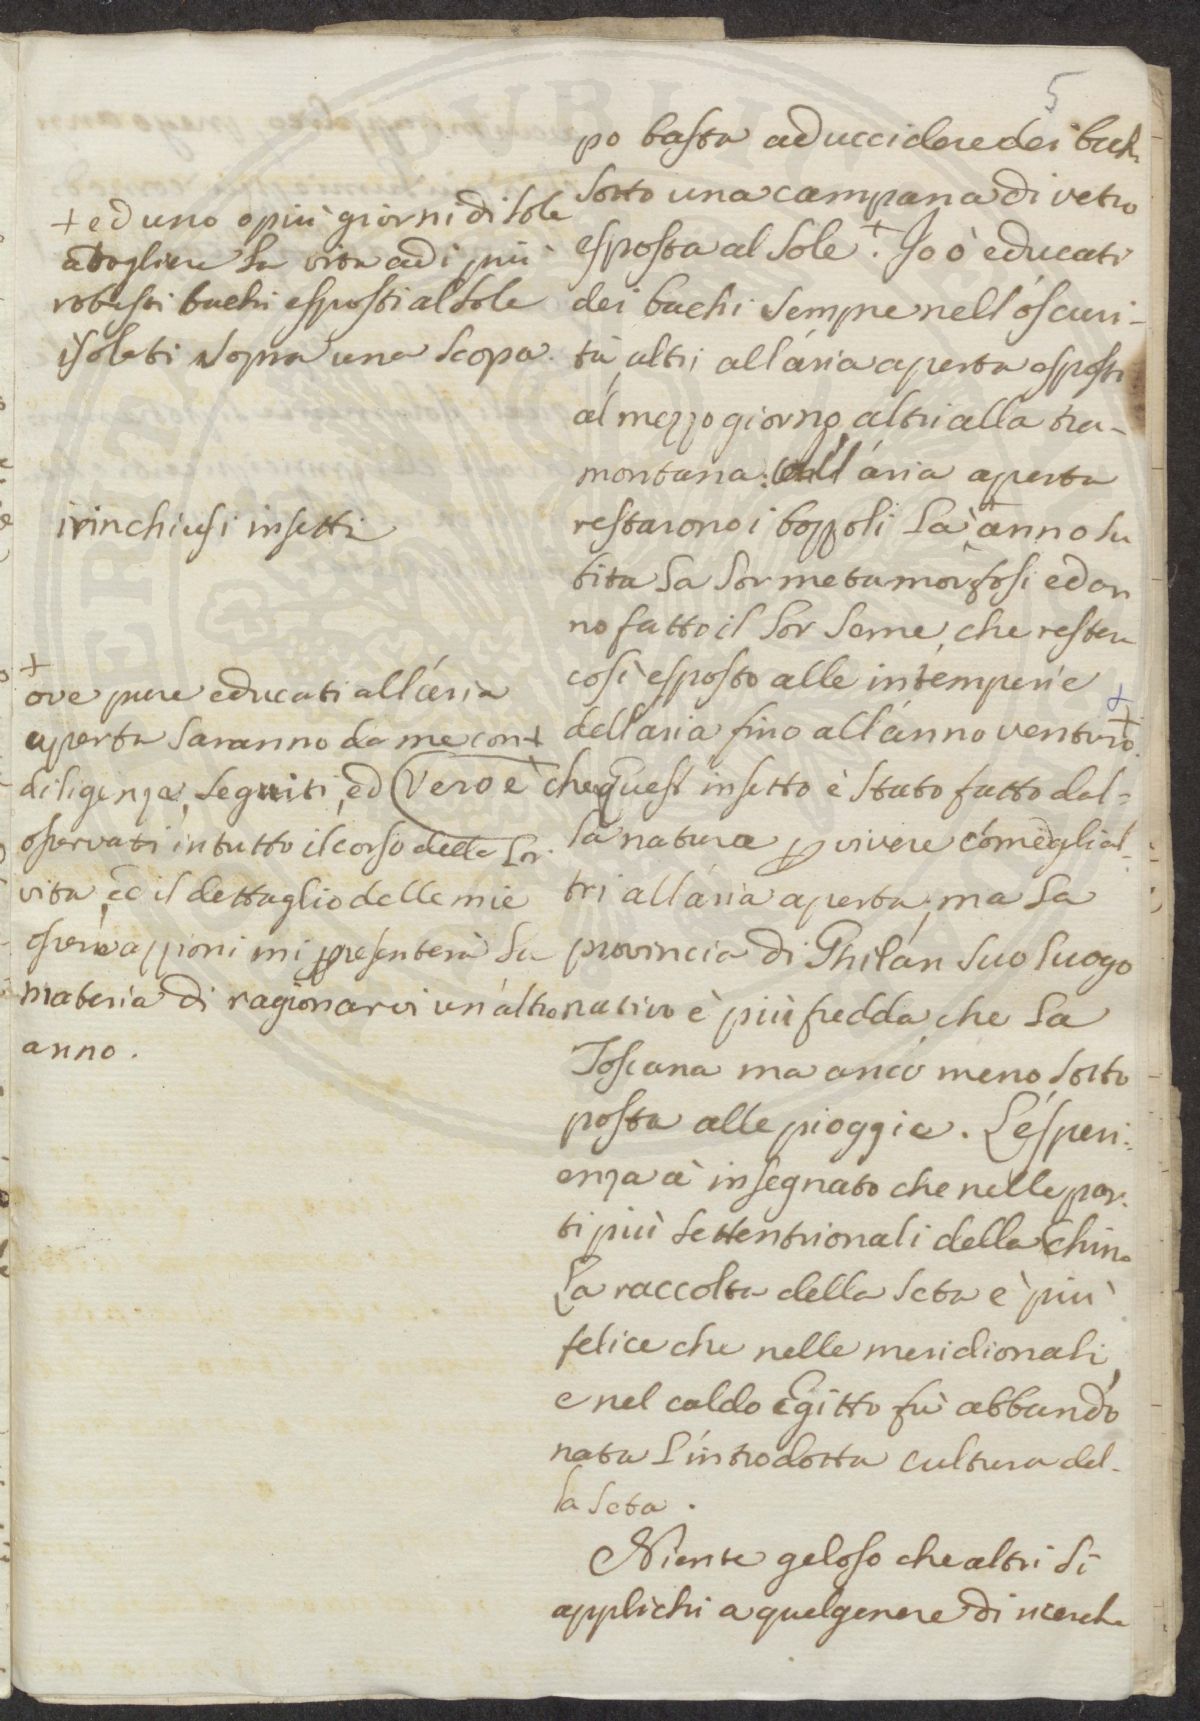 5
po basta ad uccidere dei bachi
sotto una campana di vetro
esposta al sole +. Io ò educati
dei bachi sempre nell'oscuri-
tà altri all'aria aperta esposti
al mezzo giorno, altri alla tra-
montana: all'aria aperta
restarono i bozzoli là ànno su
bita la lor metamorfosi ed an
no fatto il lor seme, che resterà
così esposto alle intemperie
dell'aria fino all'anno venturo +.
che quest'insetto è stato fatto dal-
la natura per vivere come gl'al-
tri all'aria aperta, ma la
provincia di Ghilan suo luogo
nativo è più fredda che la
Toscana ma anco meno sotto
posta alle pioggie. L'esperi-
enza à insegnato che nelle par-
ti più settentrionali della China
la raccolta della seta è più
felice che nelle meridionali,
e nel caldo Egitto fù abbando
nata l'introdotta cultura del-
la seta.
Niente geloso che altri si
applichi a quel genere di ricerche
+ ed uno o più giorni di sole
a togliere la vita ad i più
robusti bachi esposti al sole
isolati sopra una scopa.
i rinchiusi insetti
+
ove pure educati all'aria
aperta saranno da me con +
diligenza, seguiti, ed Vero è
osservati in tutto il corso della lor
vita, ed il dettaglio delle mie
operazzioni mi presenterà la
materia di ragionarvi un'altro
anno.